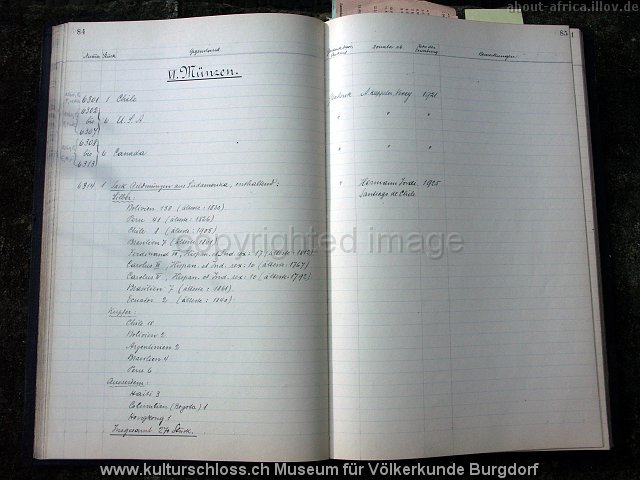 about-africa.illov.de
84
85
Gegenstand
Bemerkungen
VI. Münzen.
6301 1 Chile
Geschenk A. 1921
6302
bis 6 U.S.A " "
6307
6308
bis 6 Canada " "
6313
6314 1 Sack Geldmünzen aus Südamerika, enthaltend:
" Hermann 1925
Santiago de Chile
Silber:
Bolivien 138 (älteste: 1830)
Peru 48 (älteste: 1826)
Chile 8 (älteste: 1905)
Brasilien 7 (älteste:
Ferdinand Hispan. et Ind. rex: 17 (älteste: 1812)
Carolus III, Hispan. et Ind. rex: 10 (älteste: 1767)
Carolus Hispan. et Ind. rex: 10 (älteste: 1792)
Brasilien 7 (älteste: 1861)
Ecuador 2 (älteste: 1840)
copyrighted image
Kupfer:
Chile 11
Bolivien 2
Argentinien 2
Brasilien 4
Peru 6
Ausserdem:
Haiti 3
Columbian (Bogota) 1
Hongkong 1
Insgesamt 270 Stück.
www.kulturschloss.ch Museum für Völkerkunde Burgdorf